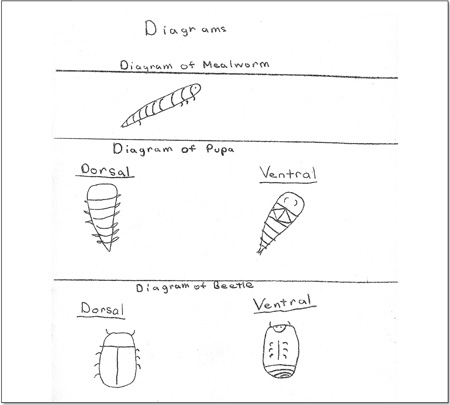 Diagrams
Diagram of Mealworm
Diagram of Pupa
Dorsal Ventral
Diagram of Beetle
Dorsal Ventral